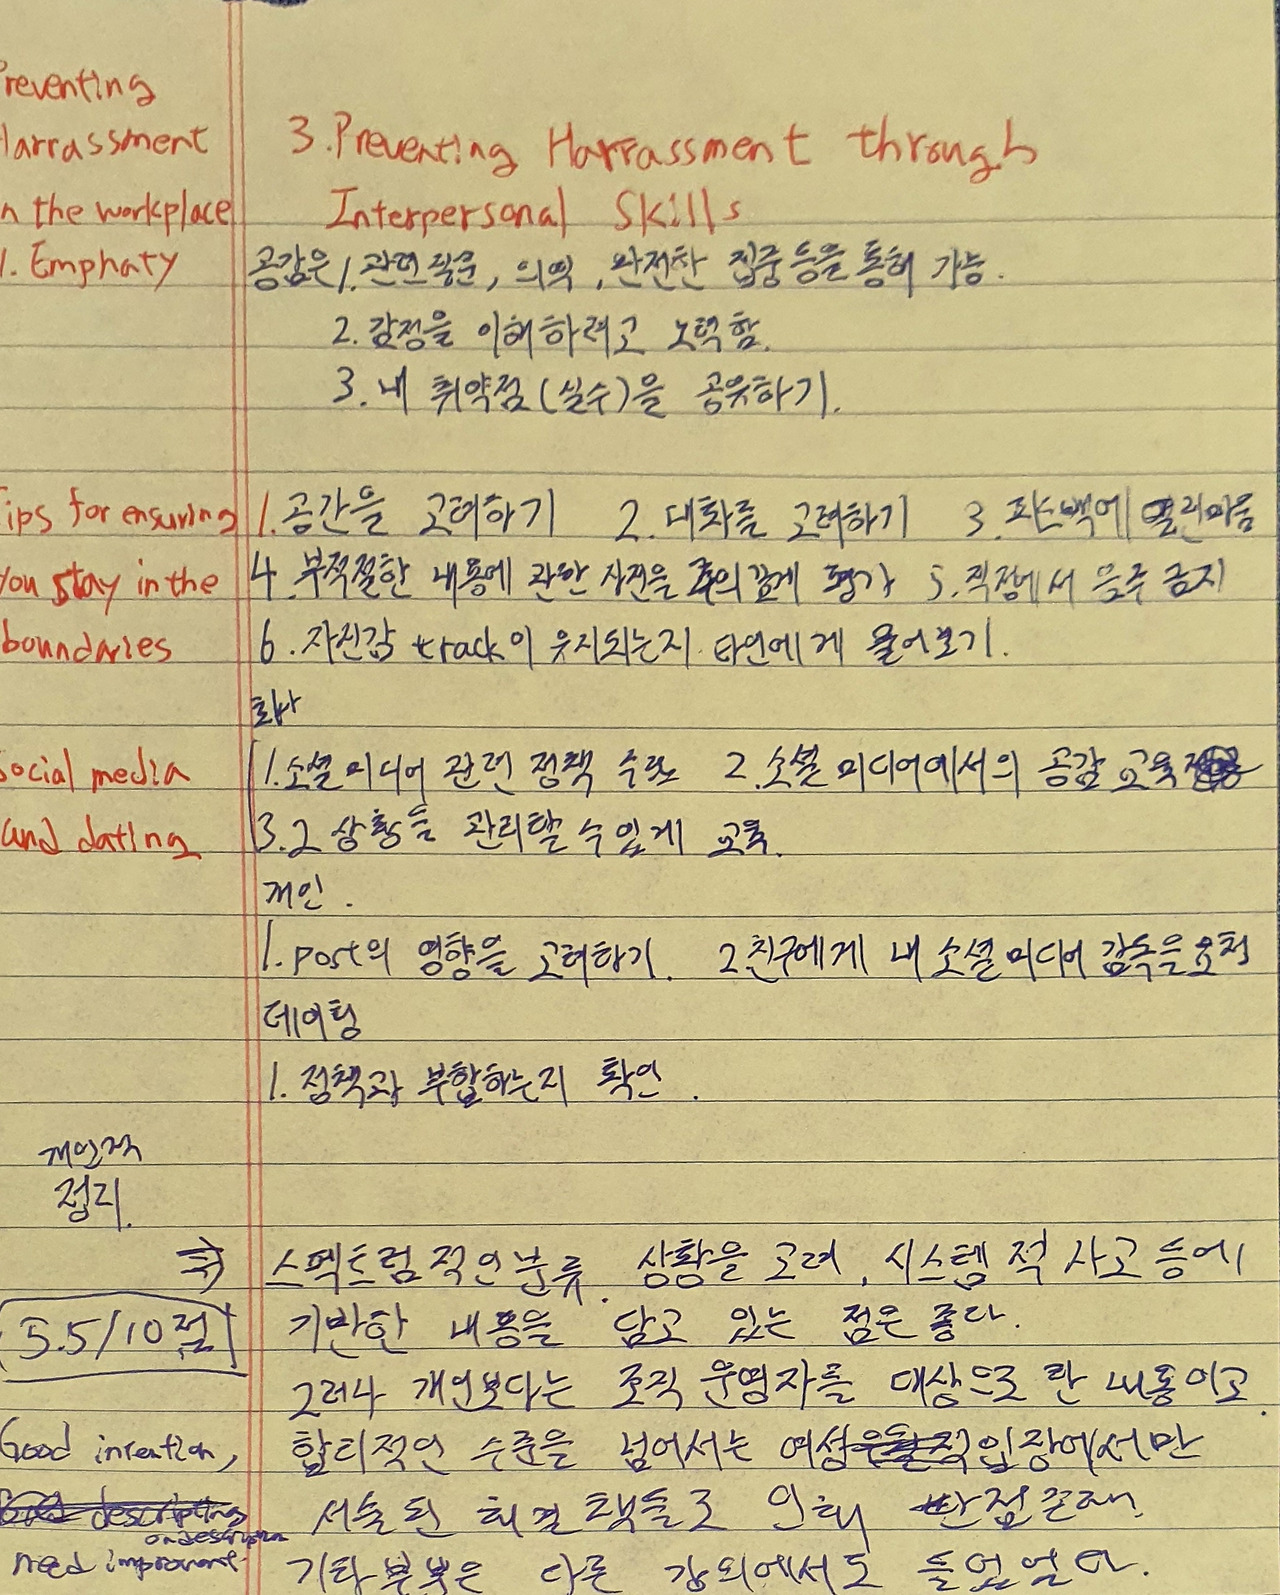 Preventing
Harrassment
in the workplace
3. Preventing Harrassment through
Interpersonal Skills
1. Emphaty
공감은 1. 관련질문, 의역, 완전한 집중 등을 통해 가능.
2. 감정을 이해하려고 노력함.
3. 내 취약점(실수)을 공유하기.
Tips for ensuring
you stay in the
boundaries
1. 공간을 고려하기 2. 대화를 고려하기 3. 피드백에 열린마음
4. 부적절한 내용에 관한 사전을 주의깊게 평가 5. 직장에서 음주 금지
6. 자신감 track이 유지되는지 타인에게 물어보기.
회사
Social media
and dating
1. 소셜 미디어 관련 정책 수립 2. 소셜 미디어에서의 공감 교육
3. 2 상황을 관리할 수 있게 교육.
개인.
1. post의 영향을 고려하기. 2 친구에게 내 소셜 미디어 감독을 요청
데이팅
1. 정책과 부합하는지 확인.
개인적
정리.
⇒ 스펙트럼적인 분류, 상황을 고려, 시스템적 사고 등에
기반한 내용을 담고 있는 점은 좋다.
그러나 개인보다는 조직 운영자를 대상으로 한 내용이고
합리적인 수준을 넘어서는 여성 입장에서만
서술된 해결책들로 인해 반점
기타 부분은 다른 강의에서도 들었었다.
5.5/10점
Good intention,
descripting
on description
need improvment.